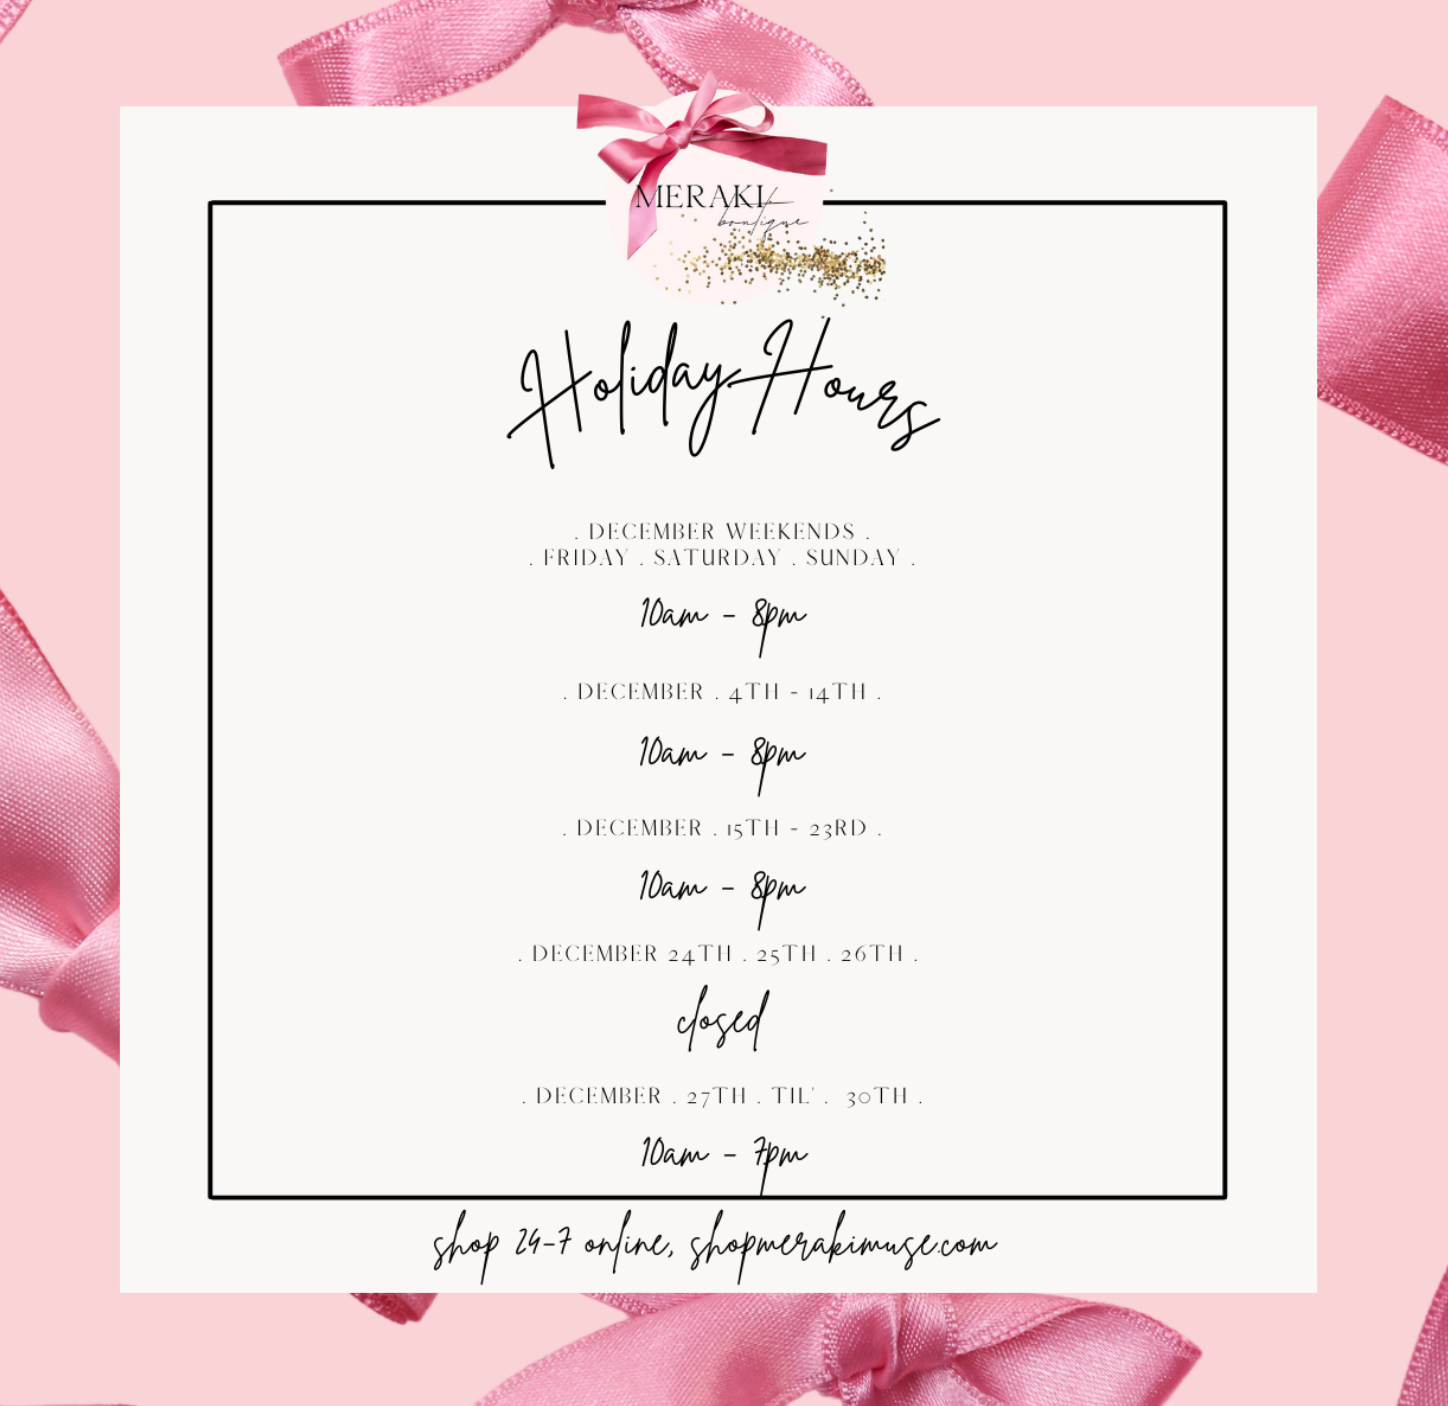 MERAKI
boutique
Holiday Hours
. DECEMBER WEEKENDS .
. FRIDAY . SATURDAY . SUNDAY .
10am - 8pm
. DECEMBER . 4TH - 14TH .
10am - 8pm
. DECEMBER . 15TH - 23RD .
10am - 8pm
. DECEMBER 24TH . 25TH . 26TH .
closed
. DECEMBER . 27TH . TIL' . 30TH .
10am - 7pm
shop 24-7 online, shopmerakimuse.com